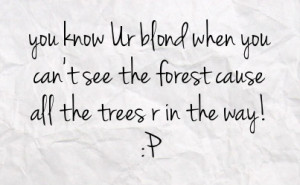 you know Ur blond when you
can't see the forest cause
all the trees r in the way!
:P